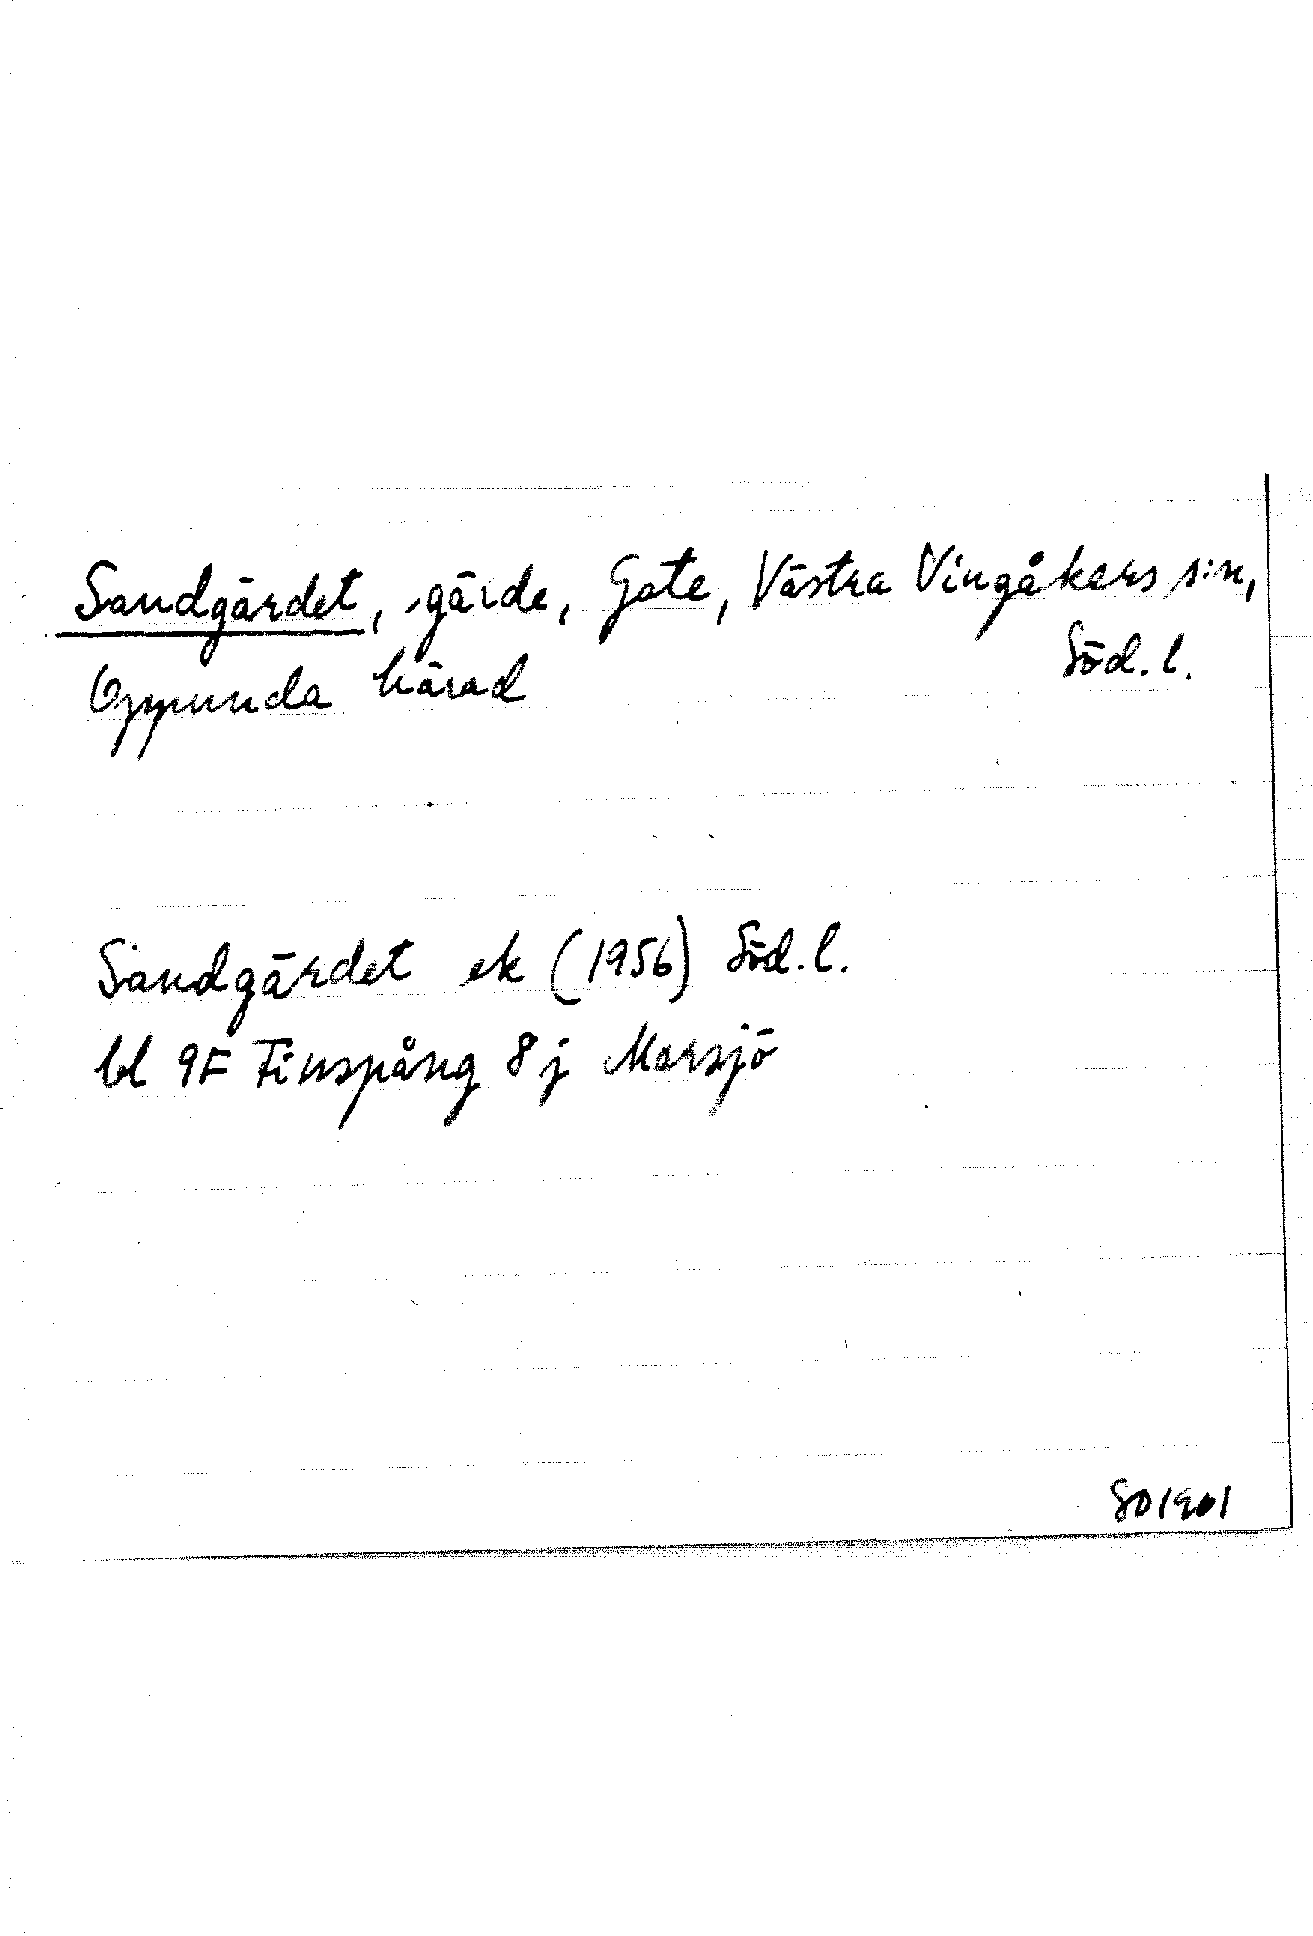 Sandgärdet, gärde, Gate, Västra Vingåkers s:n,
Söd.l.
Oppunda härad
Sandgärdet ek (1956) Söd.l.
bl 9F Finspång 8j Marsjö